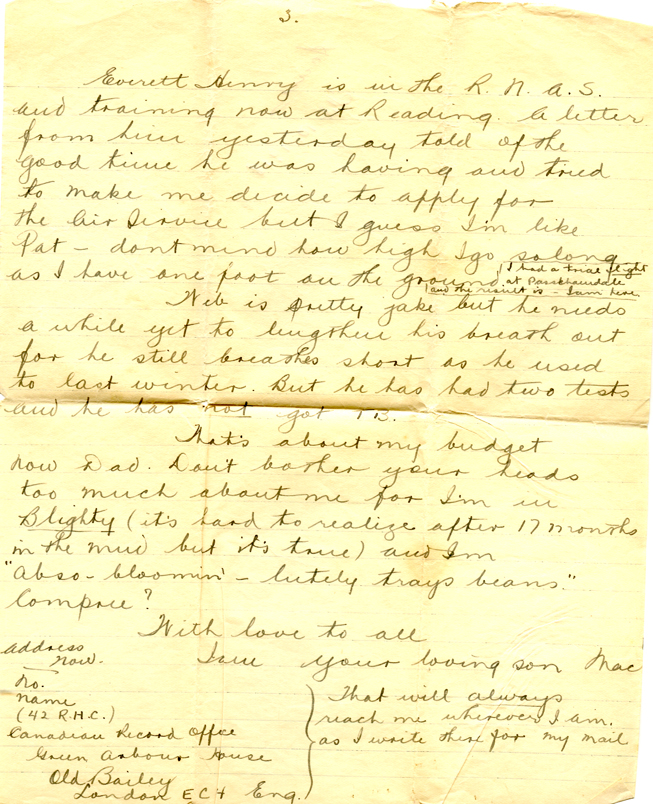 3.
Everett Henry is in the R. N. A. S.
and training now at Reading. A letter
from him yesterday told of the
good time he was having and tried
to make me decide to apply for
the Air Service but I guess I'm like
Pat - dont mind how high I go so long
as I have one foot on the ground.
I had a trial flight
at Passchaendale
and the result is - I am here
Neb is pretty jake but he needs
a while yet to lengthen his breath out
for he still breathes short as he used
to last winter. But he has had two tests
and he has not got T B.
That's about my budget
now Dad. Don't bother your heads
too much about me for I'm in
Blighty (it's hard to realize after 17 months
in the mud but it's true) and I'm
"Abso - bloomin' - lutely trays beans."
Compree?
With love to all
I am your loving son Mac
Address
now.
No.
Name
(42 R.H.C.)
Canadian Record Office
Green Arbour House
Old Bailey
London EC4 Eng.
That will always
reach me wherever I am.
as I write there for my mail